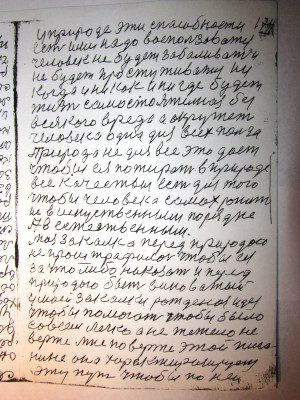 у природе эти способности
есть ими надо воспользоват
человек не будет заболиват и
не будет простуживатц ни
когда и никак и нигде будет
жит самостоятелнаи без
всякого вреда а окружает
человека одна для всех польза
природа не для все это дает
чтобы ея потират в природе
все качества ест для того
чтобы человека самахранит
не в искуственным порядке
А в естественным.
моя закалка перед природою
не проиграфилос чтобы ея
за что либо наказат и перед
природою быт виноватый
у моей закалки рожденоя идея
чтобы помогат чтобы было
совсем легко а не тежело не
верте мне поверте этой
она характиризирует
эту пут чтобы по ней